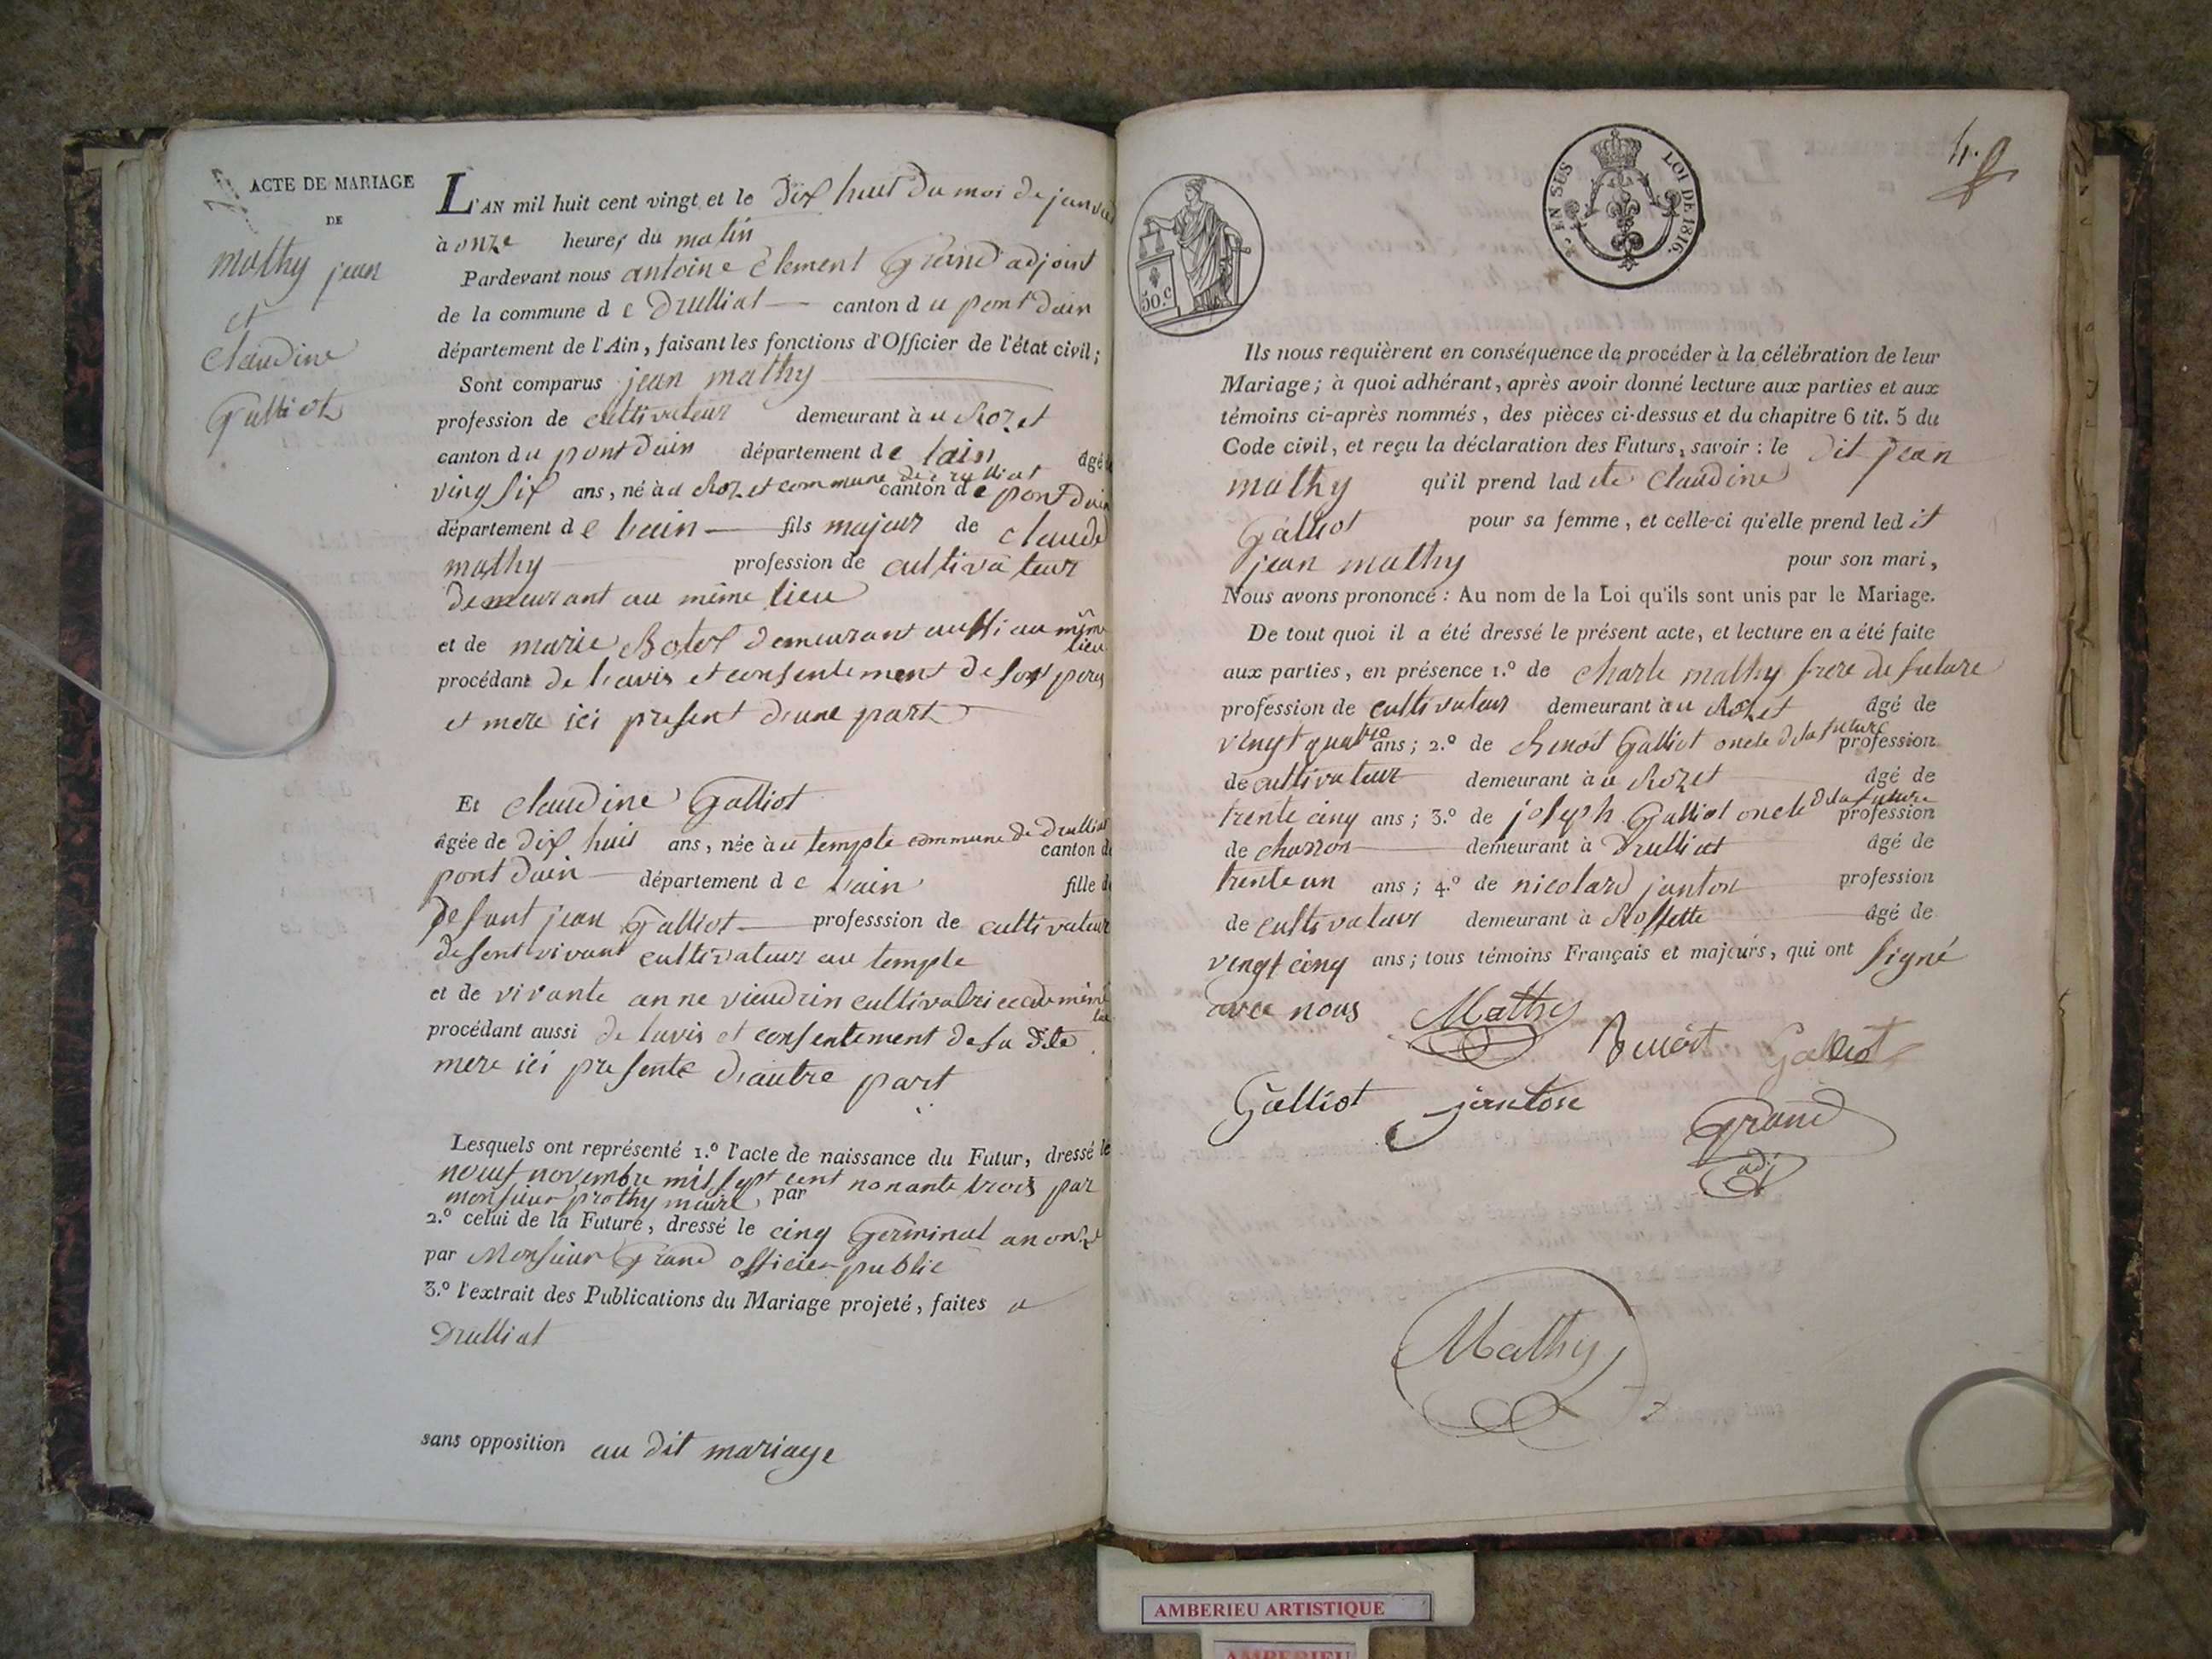 ACTE DE MARIAGE
DE
mathy jean
et
Claudine
Galliot
L'AN mil huit cent vingt et le dix huit du moi de janvie
à onze heures du matin
Pardevant nous antoine Clement Grand adjoint
de la commune de Drulliat canton du pont Dain
département de l'Ain, faisant les fonctions d'Officier de l'état civil;
Sont comparus jean mathy
profession de cultivateur demeurant à u Rozet
canton du pont Dain département de lain âgé
ving six ans, né à u Rozet commune de Drulliat canton de pont Dain
département de lain fils majeur de claude
mathy profession de cultivateur
demeurant au même lieu
et de marie demeurant aussi au même lieu
procédant de lavis et consentement de son peres
et mere ici present d'une part
Et Claudine Galliot
âgée de dix huit ans, née à u temple commune de Drulliat canton de
pont Dain département de lain fille de
defunt jean Galliot professsion de cultivateur
de sont vivant cultivateur au temple
et de vivante anne vieudrin cultivatrice au même lieu
procédant aussi de lavis et consentement de sa dite
mere ici presente d'autre part
Lesquels ont représenté 1.º l'acte de naissance du Futur, dressé le
neuf novembre mil sept cent nonante trois par
monsieur prothy maire par
2.º celui de la Future, dressé le cinq Germinal an onze
par Monsieur Grand officier public
3.º l'extrait des Publications du Mariage projeté, faites a
Drulliat
sans opposition au dit mariage
4.
EN SUS
LOI DE 1816.
50.c
Ils nous requièrent en conséquence de procéder à la célébration de leur
Mariage; à quoi adhérant, après avoir donné lecture aux parties et aux
témoins ci-après nommés, des pièces ci-dessus et du chapitre 6 tit. 5 du
Code civil, et reçu la déclaration des Futurs, savoir: le dit jean
mathy qu'il prend lad ite Claudine
Galliot pour sa femme, et celle-ci qu'elle prend led it
jean mathy pour son mari,
Nous avons prononcé: Au nom de la Loi qu'ils sont unis par le Mariage.
De tout quoi il a été dressé le présent acte, et lecture en a été faite
aux parties, en présence 1.º de charle mathy frere de future
profession de cultivateur demeurant à u Rozet âgé de
vingt quatre ans; 2.º de Benoit Galliot oncle de la future profession
de cultivateur demeurant à u Rozet âgé de
trente cinq ans; 3.º de joseph Galliot oncle de la future profession
de charron demeurant à Drulliat âgé de
trente un ans; 4.º de nicolard janton profession
de cultivateur demeurant à Rossette âgé de
vingt cinq ans; tous témoins Français et majeurs, qui ont signé
avec nous Mathy
Benoit Galliot
Galliot janton Grand
adj
Mathy
AMBERIEU ARTISTIQUE
AMBERIEU